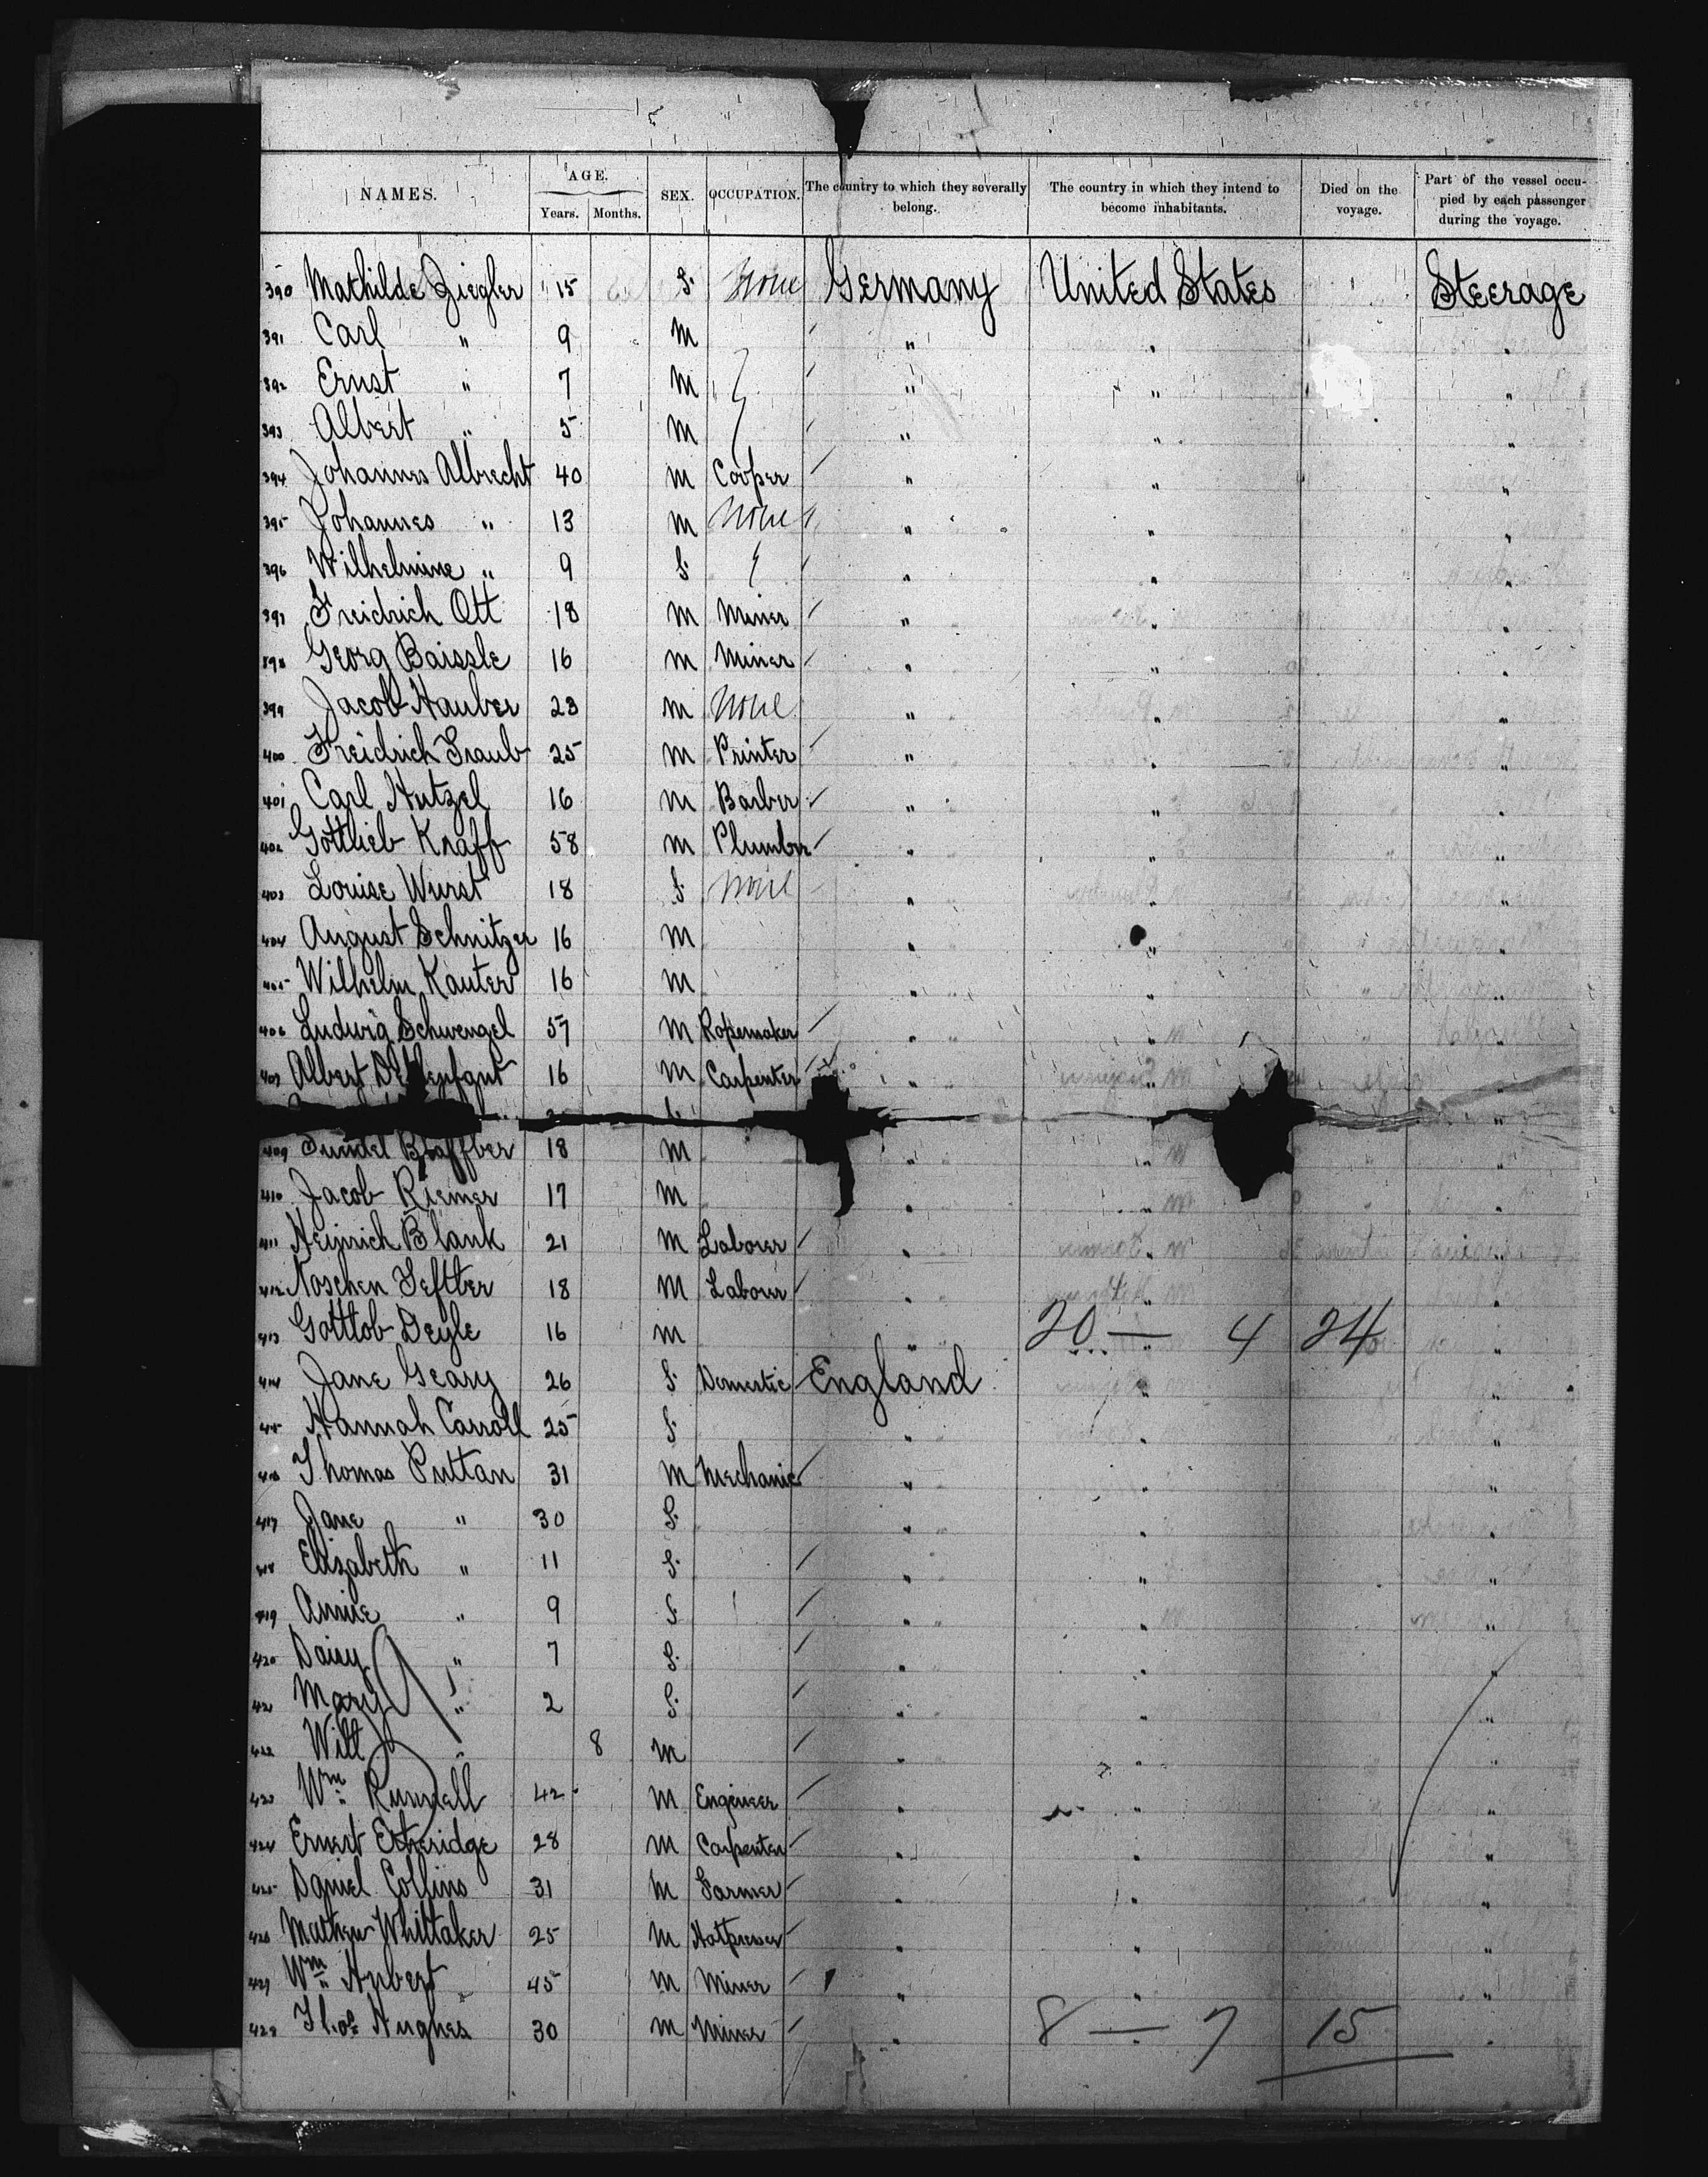 NAMES. AGE. Years. Months. SEX. OCCUPATION. The country to which they severally belong. The country in which they intend to become inhabitants. Died on the voyage. Part of the vessel occupied by each passenger during the voyage.
390 Mathilde Ziegler 15 F. None Germany United States Steerage
391 Carl " 9 M " " "
392 Ernst " 7 M " " "
393 Albert " 5 M " " "
394 Johannes Albrecht 40 M Cooper " " "
395 Johannes " 13 M None " " "
396 Wilhelmine " 9 F. " " "
397 Freidrich Ott 18 M Miner " " "
398 Georg Baissle 16 M Miner " " "
399 Jacob Hauber 23 M None " " "
400 Freidrich Traub 25 M Printer " " "
401 Carl Hutzel 16 M Barber " " "
402 Gottlieb Knaff 58 M Plumber " " "
403 Louise Wurst 18 F. None " " "
404 August Schnitzer 16 M " " "
405 Wilhelm Kauter 16 M " " "
406 Ludwig Schwengel 57 M Ropemaker " " "
407 Albert 16 M Carpenter " " "
409 18 M " " "
410 Jacob Riemer 17 M " " "
411 Heinrich Blank 21 M Laborer " " "
412 18 M Laborer " " "
413 Gottlob Deyle 16 M " " 20 — 4 24 "
414 Jane Geary 26 F. Domestic England " "
415 Hannah Carroll 25 F. " " "
416 Thomas Puttan 31 M Mechanic " " "
417 Jane " 30 F. " " "
418 Elizabeth " 11 F. " " "
419 Annie " 9 F. " " "
420 Daisy " 7 F. " " "
421 Mary " 2 F. " " "
422 Will " 8 M " " "
423 Wm Russell 42 M Engineer " " "
424 Ernest Etheridge 28 M Carpenter " " "
425 Daniel Collins 31 M Farmer " " "
426 Mathew Whittaker 25 M Hotpresser " " "
427 Wm Hubert 45 M Miner " " "
428 Thos Hughes 30 M Miner " " 8 — 7 15 "